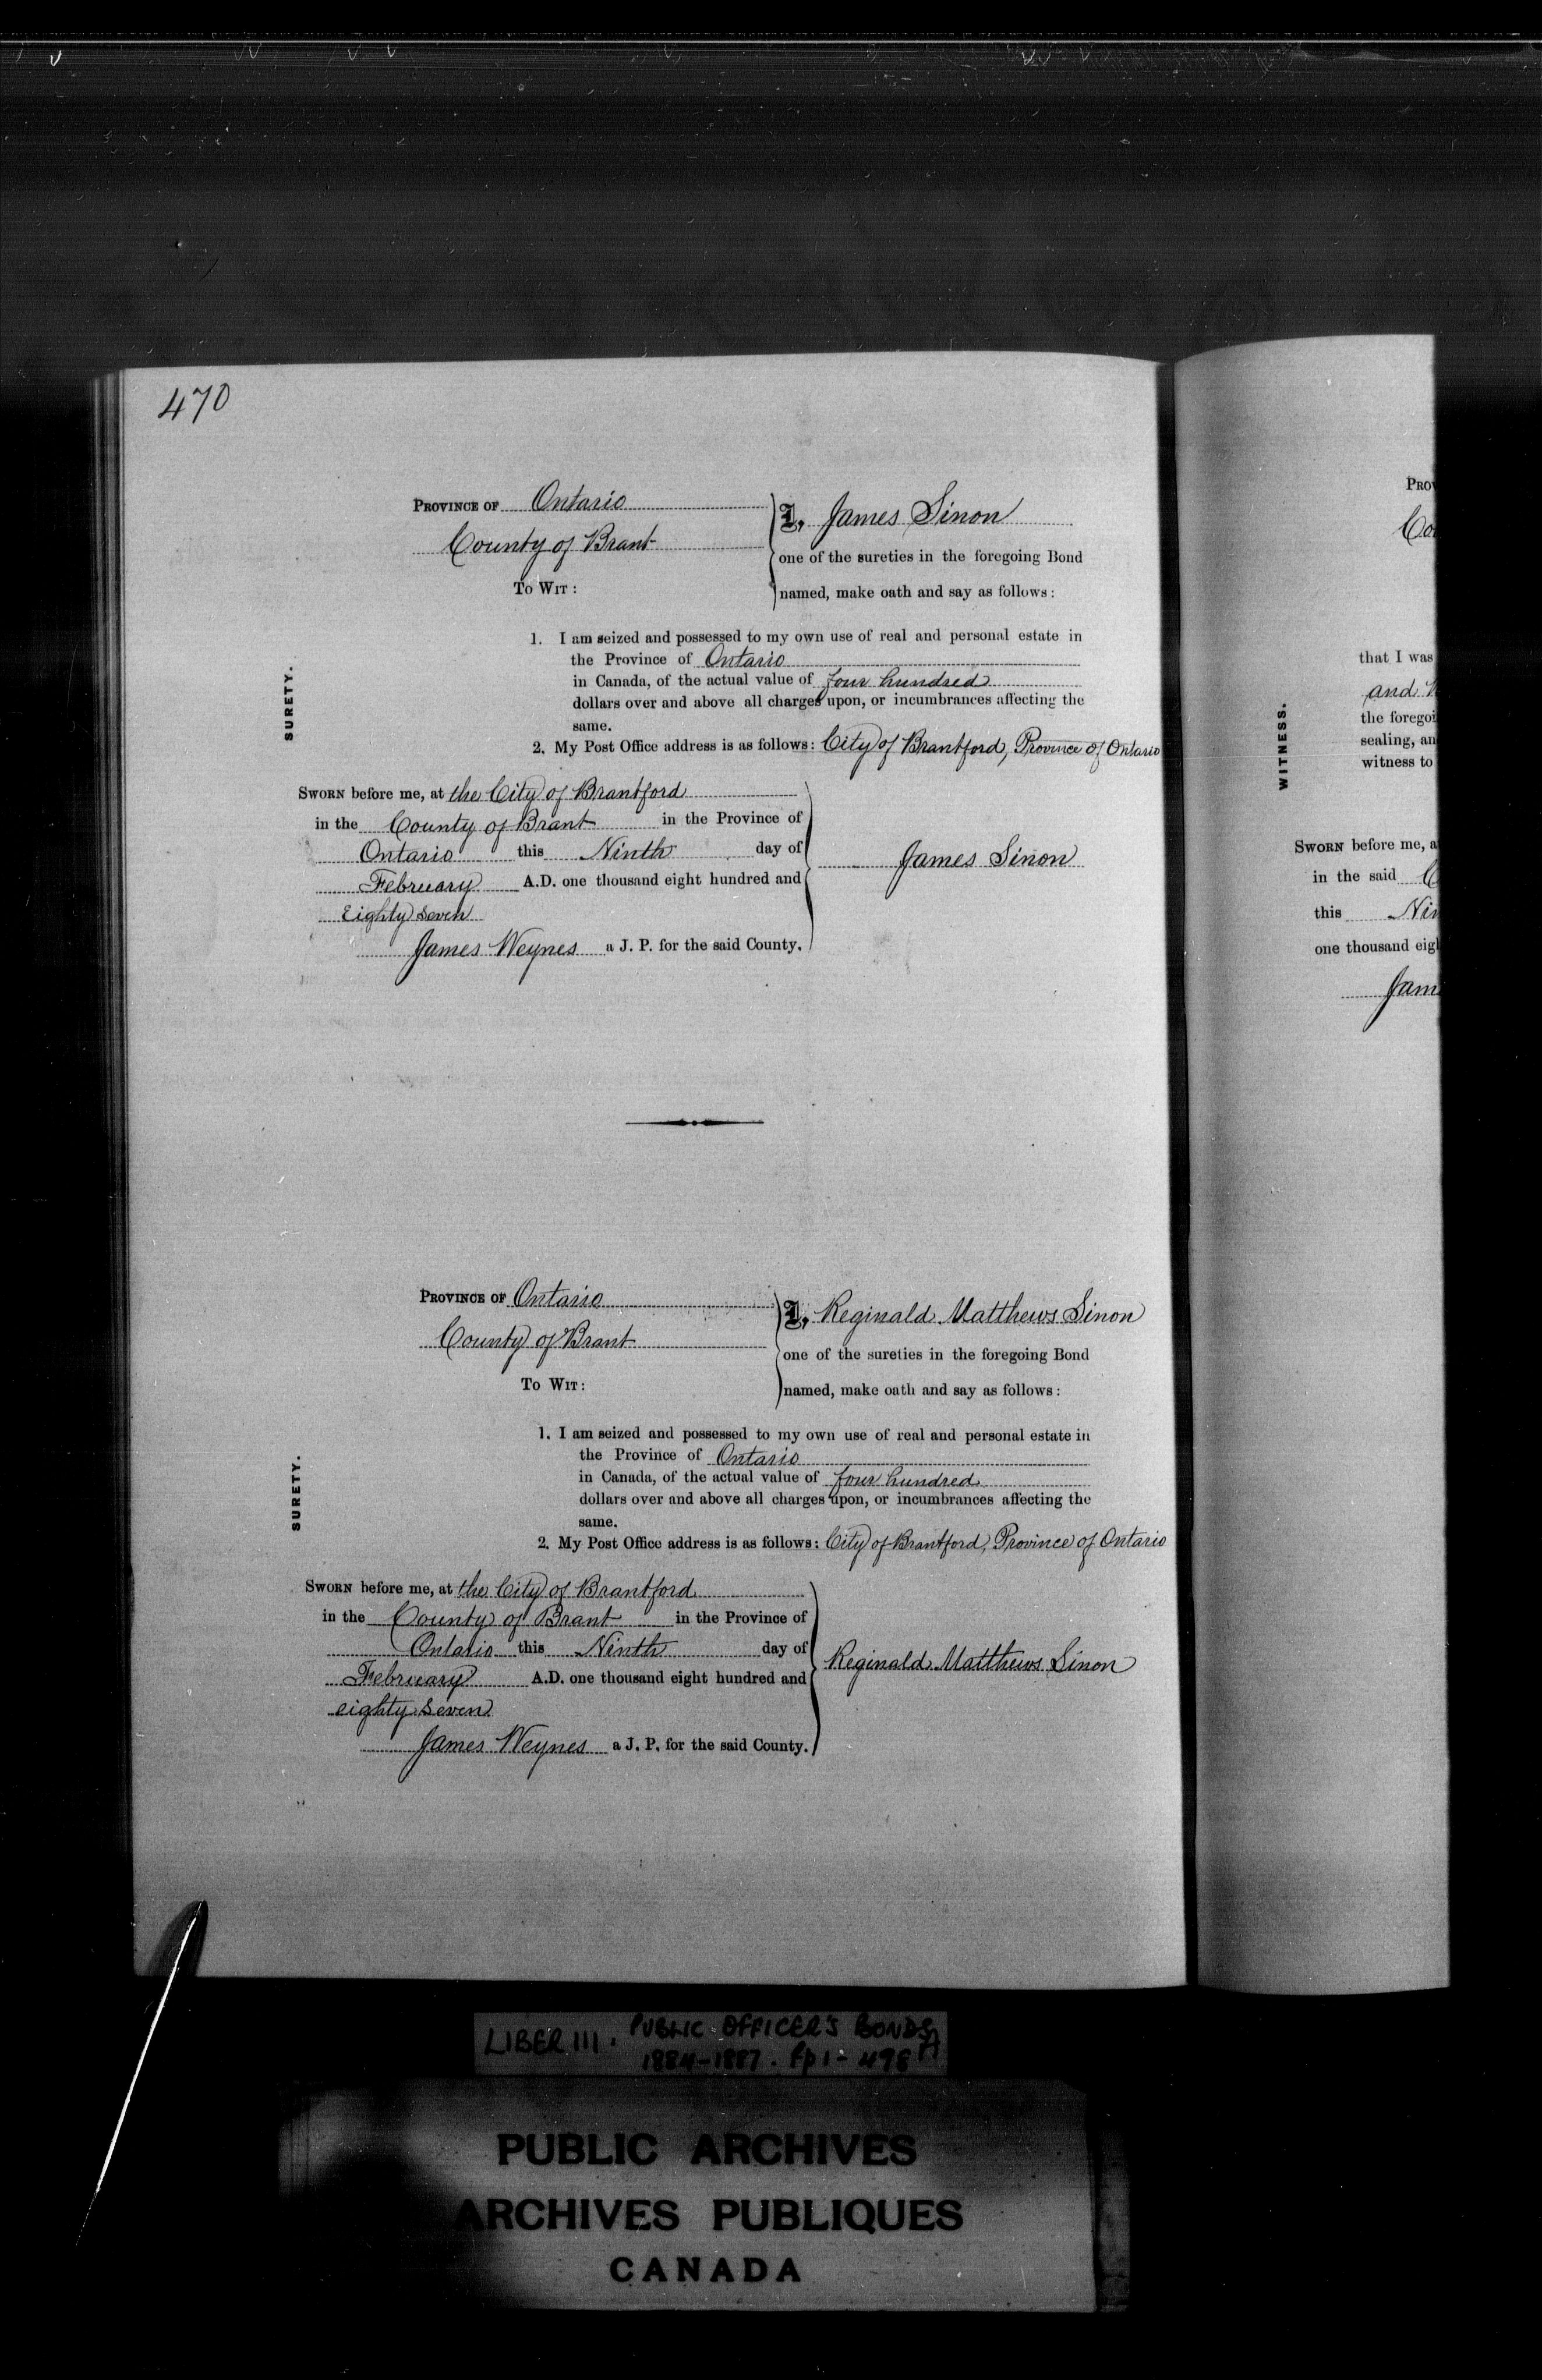 470
PROVINCE OF Ontario
County of Brant
TO WIT:
I, James Sinon
one of the sureties in the foregoing Bond
named, make oath and say as follows:
SURETY.
1. I am seized and possessed to my own use of real and personal estate in
the Province of Ontario
in Canada, of the actual value of four hundred
dollars over and above all charges upon, or incumbrances affecting the
same.
2. My Post Office address is as follows: City of Brantford, Province of Ontario
SWORN before me, at the City of Brantford
in the County of Brant in the Province of
Ontario this Ninth day of
February A.D. one thousand eight hundred and
Eighty seven
James Weynes a J. P. for the said County.
James Sinon
PROVINCE OF Ontario
County of Brant
TO WIT:
I, Reginald Matthews Sinon
one of the sureties in the foregoing Bond
named, make oath and say as follows:
SURETY.
1. I am seized and possessed to my own use of real and personal estate in
the Province of Ontario
in Canada, of the actual value of four hundred
dollars over and above all charges upon, or incumbrances affecting the
same.
2. My Post Office address is as follows: City of Brantford, Province of Ontario
SWORN before me, at the City of Brantford
in the County of Brant in the Province of
Ontario this Ninth day of
February A.D. one thousand eight hundred and
eighty seven
James Weynes a J. P. for the said County.
Reginald Matthews Sinon
WITNESS.
that I was
and
the foregoi
sealing, an
witness to
SWORN before me, a
in the said C
this Nin
one thousand eigh
Jam
LIBER III. PUBLIC OFFICER'S BONDS
1884-1887. fp 1-498
PUBLIC ARCHIVES
ARCHIVES PUBLIQUES
CANADA